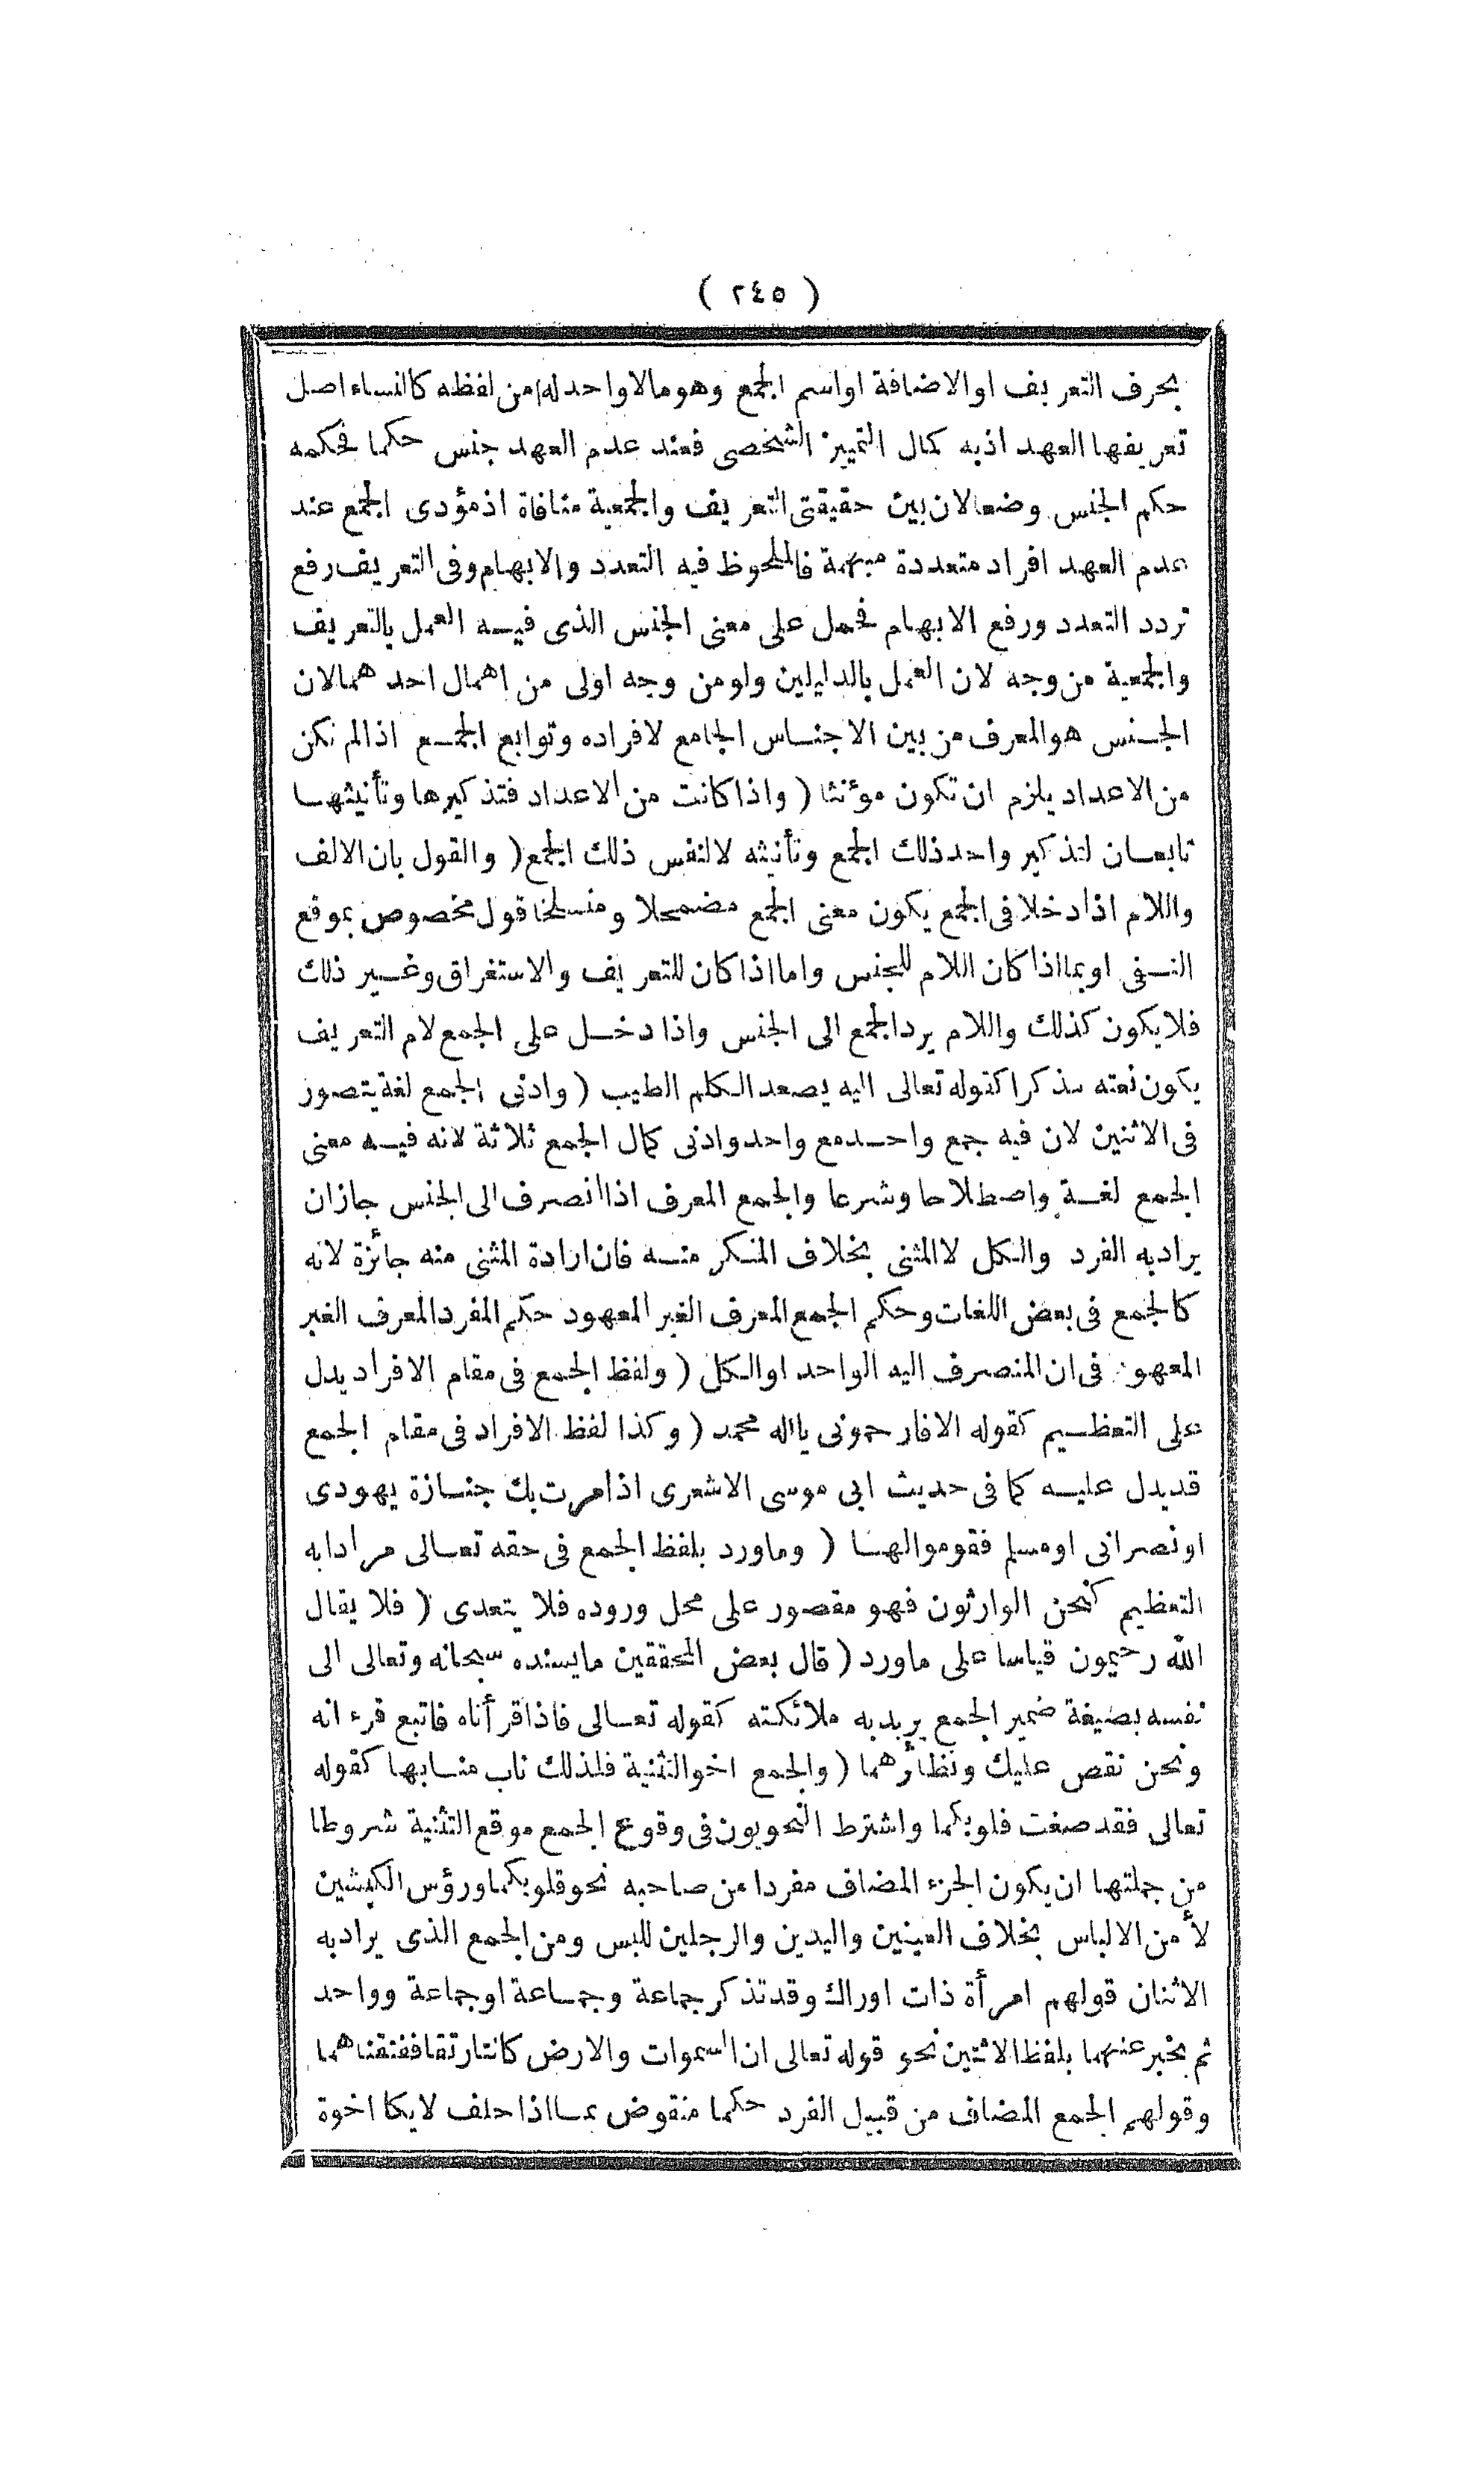 ( ٢٤٥ )
بحرف التعريف او الاضافة او اسم الجمع وهو مالا واحد له من لفظه كالنساء اصل
تعريفها العهد اذ به كمال التمييز الشخصى فعند عدم العهد جنس حكما فحكمه
حكم الجنس وضعا لان بين حقيقتى التعريف والجمعية منافاة اذ مؤدى الجمع عند
عدم العهد افراد متعددة مبهمة فالملحوظ فيه التعدد والابهام وفى التعريف رفع
تردد التعدد ورفع الابهام فحمل على معنى الجنس الذى فيه العمل بالتعريف
والجمعية من وجه لان العمل بالدليلين ولو من وجه اولى من اهمال احدهما لان
الجنس هو المعرف من بين الاجناس الجامع لافراده وتوابع الجمع اذا لم تكن
من الاعداد يلزم ان تكون مؤنثا ( واذا كانت من الاعداد فتذكيرها وتأنيثها
تابعان لتذكير واحد ذلك الجمع وتأنيثه لا لنفس ذلك الجمع ( والقول بان الالف
واللام اذا دخلا فى الجمع يكون معنى الجمع مضمحلا ومنسلخا قول مخصوص بموقع
النفى او بما اذا كان اللام للجنس واما اذا كان للتعريف والاستغراق وغير ذلك
فلا يكون كذلك واللام يرد الجمع الى الجنس واذا دخل على الجمع لام التعريف
يكون نعته مذكرا كقوله تعالى اليه يصعد الكلم الطيب ( وادنى الجمع لغة يتصور
فى الاثنين لان فيه جمع واحد مع واحد وادنى كمال الجمع ثلاثة لانه فيه معنى
الجمع لغة واصطلاحا وشرعا والجمع المعرف اذا انصرف الى الجنس جاز ان
يراد به الفرد والكل لا المثنى بخلاف المنكر منه فان ارادة المثنى منه جائزة لانه
كالجمع فى بعض اللغات وحكم الجمع المعرف الغير المعهود حكم المفرد المعرف الغير
المعهود فى ان المنصرف اليه الواحد او الكل ( ولفظ الجمع فى مقام الافراد يدل
على التعظيم كقوله الا فارحمونى يا اله محمد ( وكذا لفظ الافراد فى مقام الجمع
قد يدل عليه كما فى حديث ابى موسى الاشعرى اذا مرت بك جنازة يهودى
او نصرانى او مسلم فقوموا لها ( وما ورد بلفظ الجمع فى حقه تعالى مرادا به
التعظيم كنحن الوارثون فهو مقصور على محل وروده فلا يتعدى ( فلا يقال
الله رحيمون قياسا على ما ورد ( قال بعض المحققين ما يسنده سبحانه وتعالى الى
نفسه بصيغة ضمير الجمع يريد به ملائكته كقوله تعالى فاذا قرأناه فاتبع قرءانه
ونحن نقص عليك ونظائرهما ( والجمع اخو التثنية فلذلك ناب منابها كقوله
تعالى فقد صغت قلوبكما واشترط النحويون فى وقوع الجمع موقع التثنية شروطا
من جملتها ان يكون الجزء المضاف مفردا من صاحبه نحو قلوبكما ورؤس الكبشين
لأمن الالباس بخلاف العينين واليدين والرجلين للبس ومن الجمع الذى يراد به
الاثنان قولهم امرأة ذات اوراك وقد تذكر جماعة وجماعة او جماعة وواحد
ثم يخبر عنهما بلفظ الاثنين نحو قوله تعالى ان السموات والارض كانتا رتقا ففتقناهما
وقولهم الجمع المضاف من قبيل الفرد حكما منقوض بما اذا حلف لا يكلم اخوة